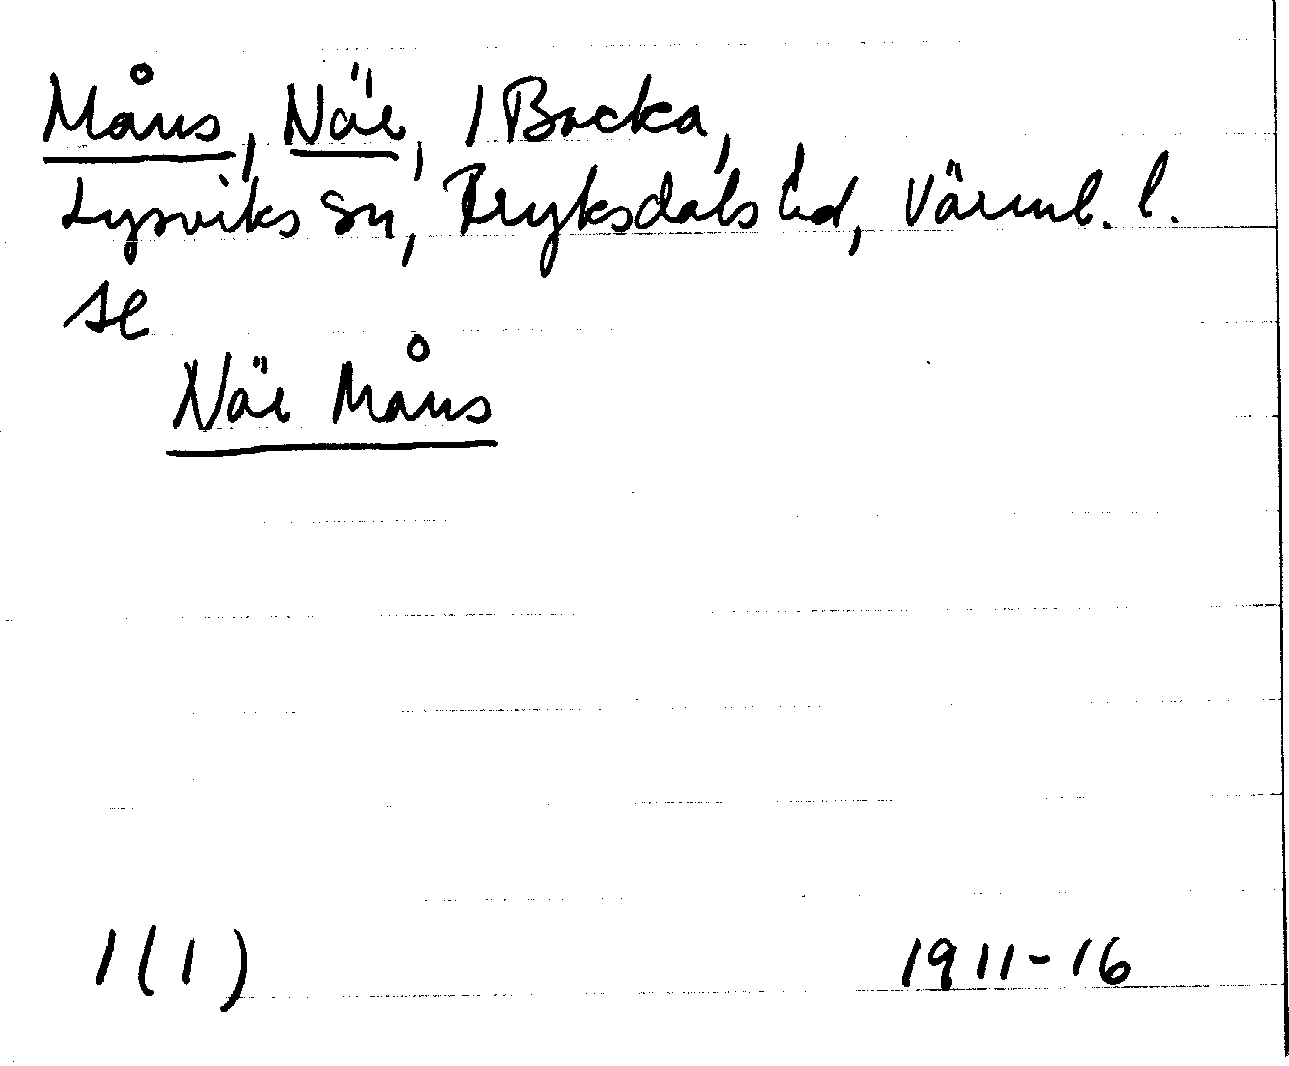 Måns, Näe, 1 Backa,
Lysviks sn, Fryksdals hd, Värml. l.
se
Näe Måns
1(1) 1911-16